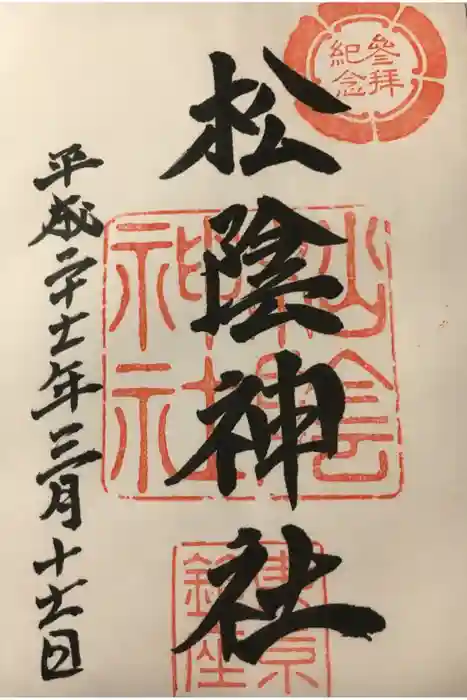 參拝
紀念
松陰神社
平成二十七年三月十七日
松陰
神社
東京
鎮座